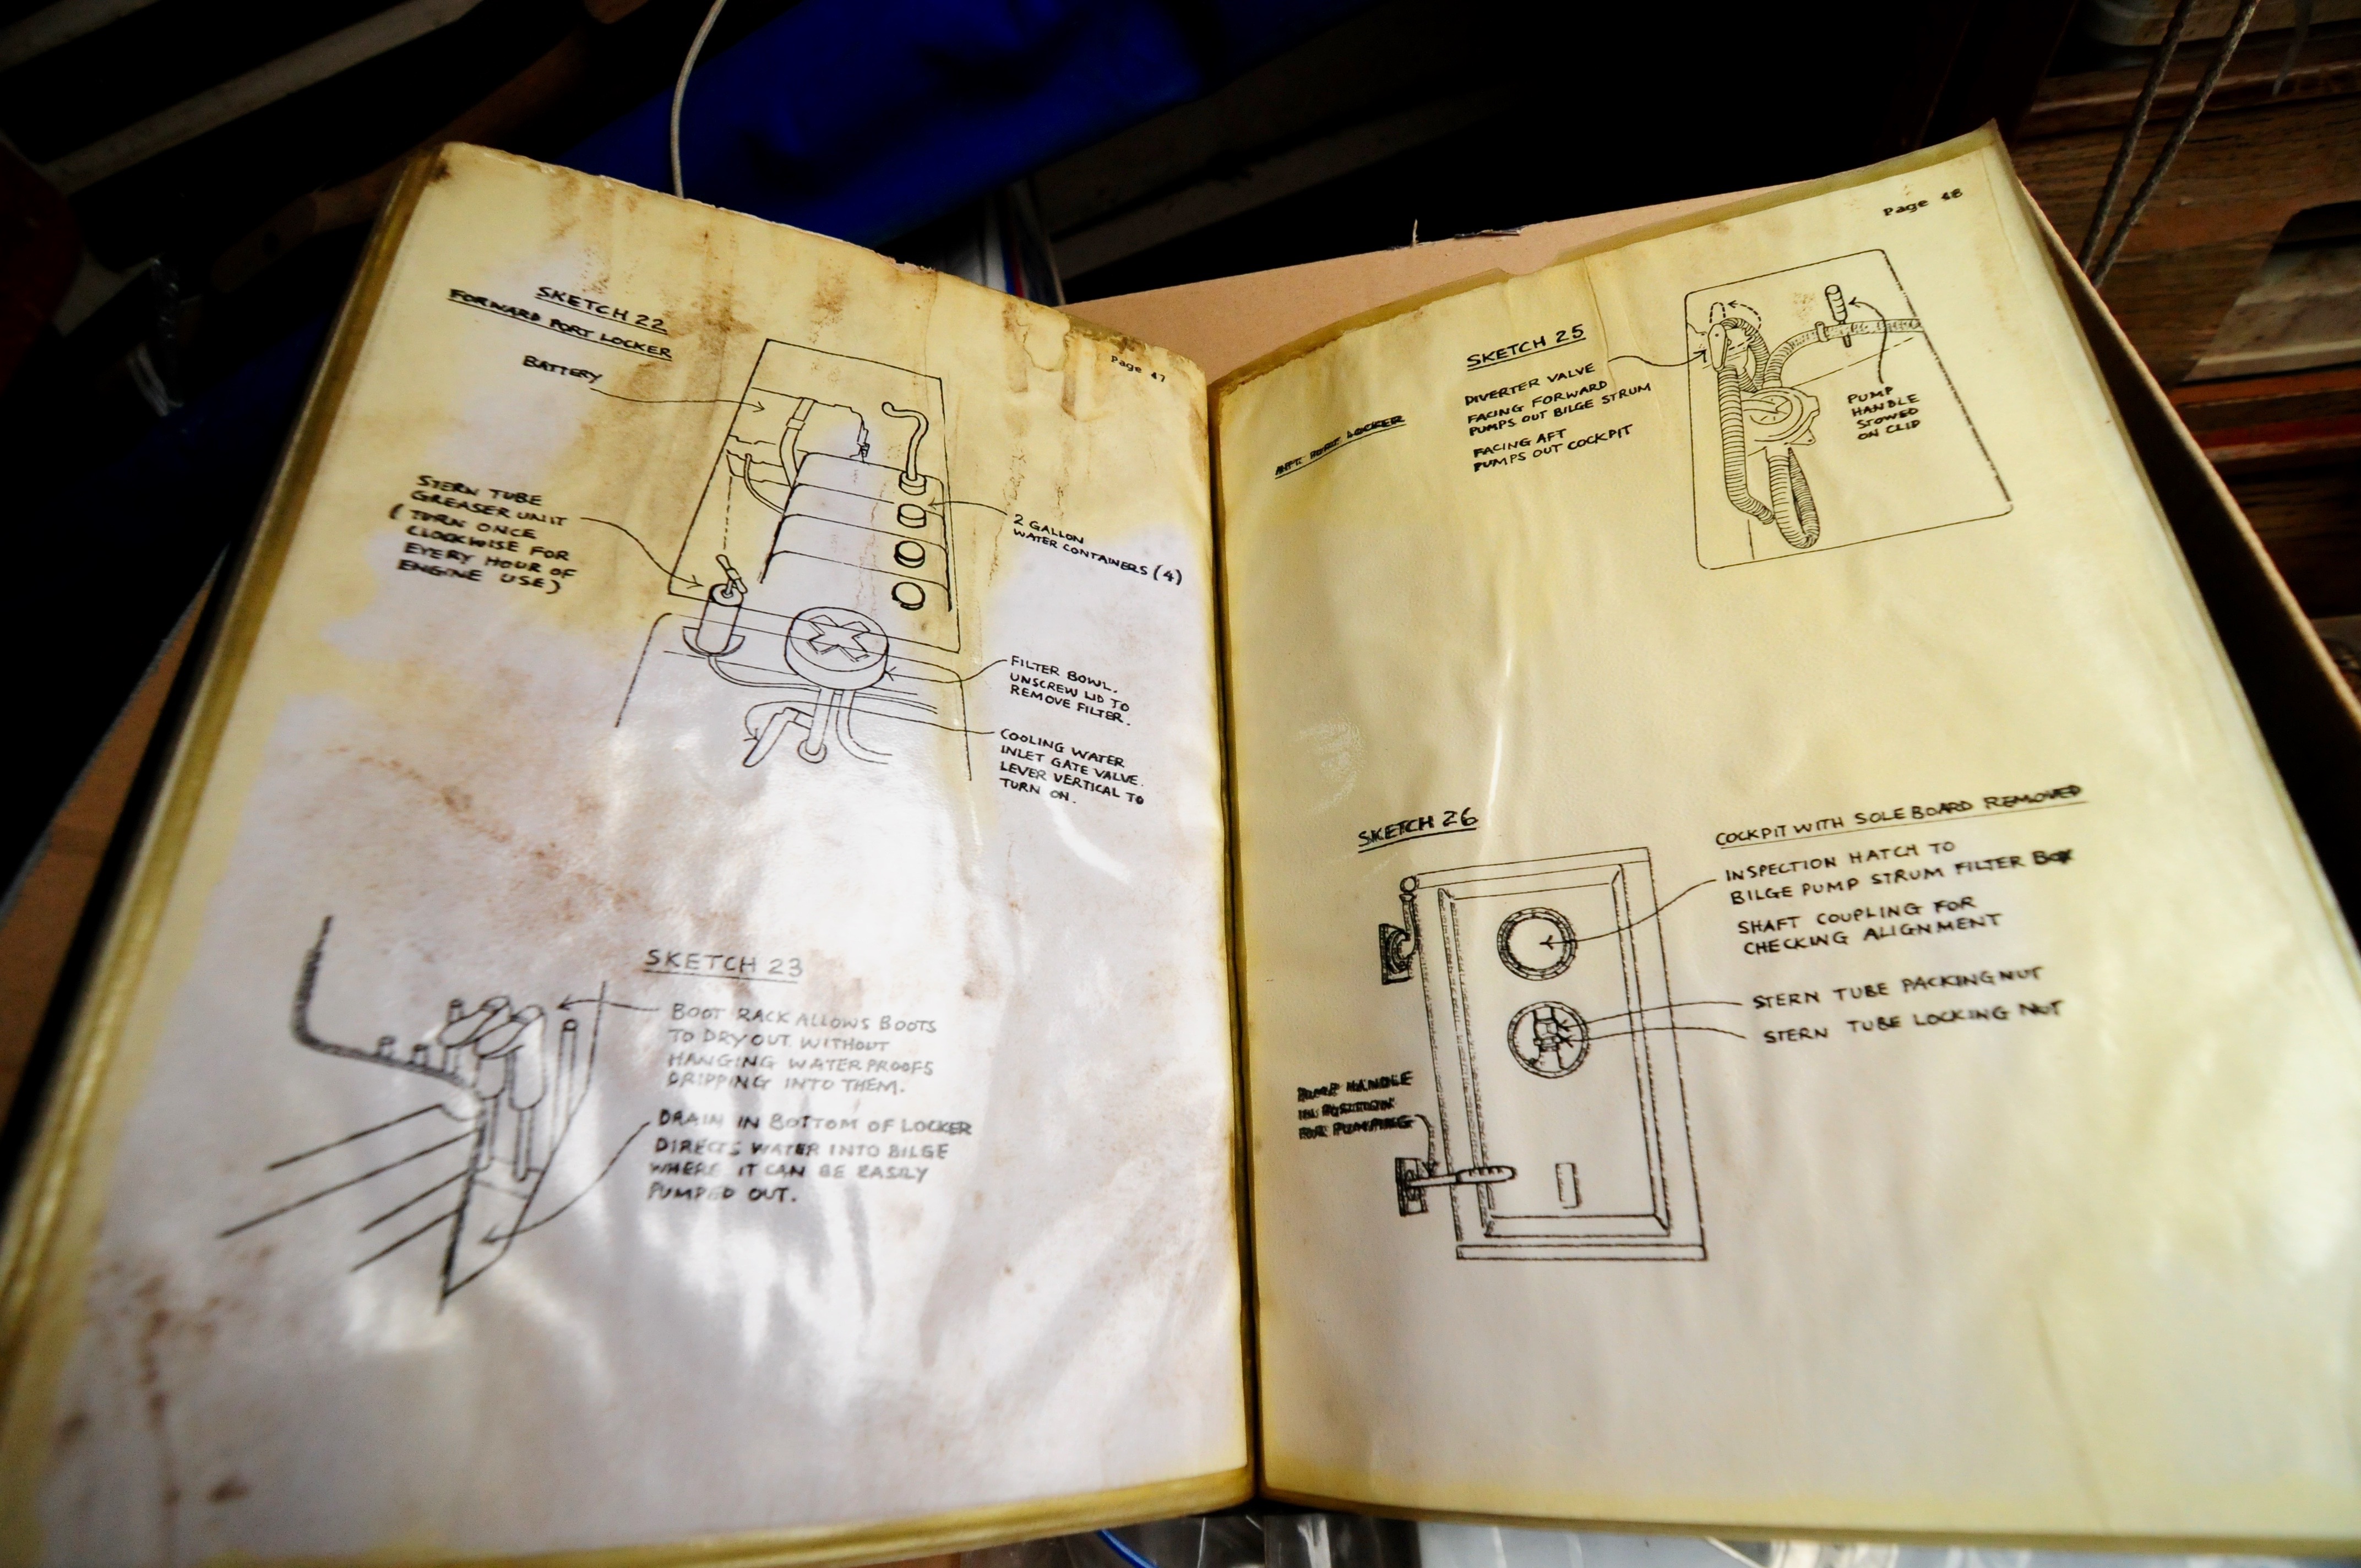 Page 47
SKETCH 22
FORWARD PORT LOCKER
BATTERY
STERN TUBE
GREASER UNIT
( TURN ONCE
CLOCKWISE FOR
EVERY HOUR OF
ENGINE USE)
2 GALLON
WATER CONTAINERS (4)
FILTER BOWL.
UNSCREW LID TO
REMOVE FILTER.
COOLING WATER
INLET GATE VALVE.
LEVER VERTICAL TO
TURN ON.
SKETCH 23
BOOT RACK ALLOWS BOOTS
TO DRY OUT WITHOUT
HANGING WATERPROOFS
DRIPPING INTO THEM.
DRAIN IN BOTTOM OF LOCKER
DIRECTS WATER INTO BILGE
WHERE IT CAN BE EASILY
PUMPED OUT.
Page 48
SKETCH 25
AFT. PORT LOCKER
DIVERTER VALVE
FACING FORWARD
PUMPS OUT BILGE STRUM
FACING AFT
PUMPS OUT COCKPIT
PUMP
HANDLE
STOWED
ON CLIP
SKETCH 26
COCKPIT WITH SOLE BOARD REMOVED
INSPECTION HATCH TO
BILGE PUMP STRUM FILTER BOX
SHAFT COUPLING FOR
CHECKING ALIGNMENT
STERN TUBE PACKING NUT
STERN TUBE LOCKING NUT
PUMP HANDLE
IN POSITION
FOR PUMPING